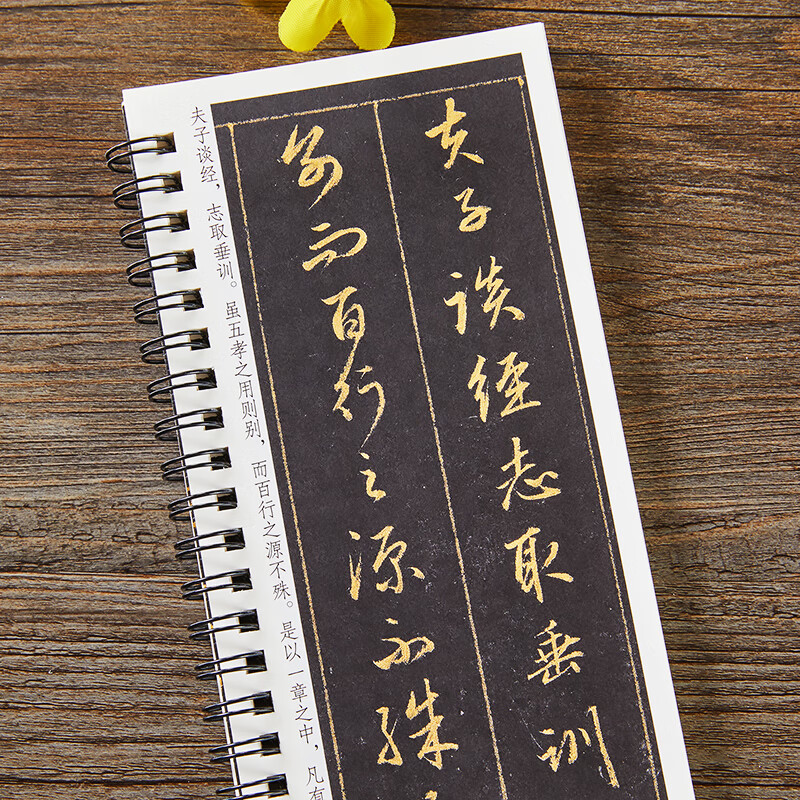 夫子談経志取垂訓
別而百行之源不殊
夫子谈经，志取垂训。虽五孝之用则别，而百行之源不殊。是以一章之中，凡有